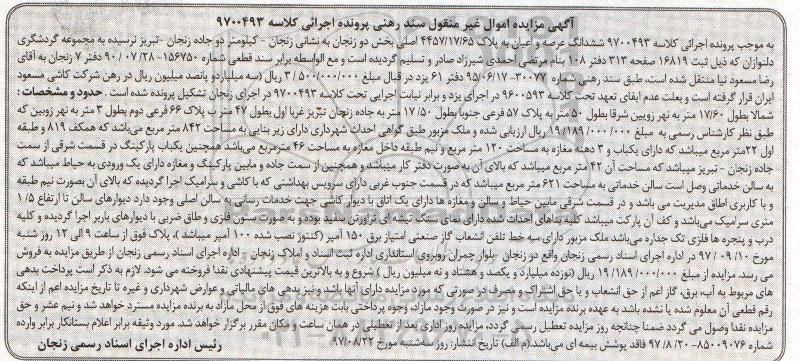 آگهی مزایده اموال غیر منقول سند رهنی پرونده اجرائی کلاسه ۹۷۰۰۴۹۳
به موجب پرونده اجرائی کلاسه ۹۷۰۰۴۹۳ ششدانگ عرصه و اعیان به پلاک ۴۴۵۷/۱۷/۶۵ اصلی بخش دو زنجان به نشانی زنجان - کیلومتر دو جاده زنجان -تبریز نرسیده به مجموعه گردشگری
دلنوازان که ذیل ثبت ۱۶۸۱۹ صفحه ۳۱۳ دفتر ۱۰۸ بنام مرتضی احمدی شیرزاد صادر و تسلیم گردیده است و مع الواسطه برابر سند قطعی شماره ۱۵۶۷۵۰-۹۰/۰۷/۲۸ دفتر ۷ زنجان به آقای
رضا مسعود نیا منتقل شده است، طبق سند رهنی شماره ۳۰۰۷۷-۹۵/۰۶/۱۷ دفتر ۶۱ یزد در قبال مبلغ ۳/۵۰۰/۰۰۰/۰۰۰ ریال (سه میلیاردو پانصد میلیون ریال در رهن شرکت کاشی مسعود
ایران قرار گرفته است و بعلت عدم ایفای تعهد تحت کلاسه ۹۶۰۰۵۹۳ در اجرای یزد و برابر نیابت اجرایی تحت کلاسه ۹۷۰۰۴۹۳ در اجرای زنجان تشکیل پرونده شده است . حدود و مشخصات :
شمالا بطول ۱۷/۶۰ متر به نهر زوبین شرقا بطول ۵۰ متر به پلاک ۵۷ فرعی جنوبا بطول ۱۷/۵۰ متر به جاده زنجان تبریز غربا اول بطول ۴۷ متر ب پلاک ۶۶ فرعی دوم بطول ۳ متر به نهر زوبین که
طبق نظر کارشناس رسمی به مبلغ ۱۹/۱۸۹/۰۰۰/۰۰۰ ریال ارزیابی شده و ملک مزبور طبق گواهی احداث شهرداری دارای زیر بنایی به مساحت ۸۴۲ متر مربع می‌باشد که همکف ۸۱۹ و طبقه
اول ۲۲متر مربع میباشد که دارای یکباب و ۳ دهنه مغازه به مساحت ۱۲۰ متر مربع و نیم طبقه داخل مغازه به مساحت ۴۶ مترمربع می‌باشد همچنین یکباب پارکینگ در قسمت شرقی از سمت
جاده زنجان - تبریز میباشد که مساحت آن ۴۲ متر مربع میباشد که بالای آن به صورت دفتر کار میباشد و همچنین از سمت جاده و مابین پارکینگ و مغازه دارای یک ورودی به حیاط میباشد که
به سالن خدماتی وصل است سالن خدماتی به مساحت ۶۲۱ متر مربع میباشد که در قسمت جنوب غربی دارای سرویس بهداشتی که با کاشی و سرامیک اجرا گردیده که بالای آن بصورت نیم طبقه
و با کاربری اطاق مدیریت می باشد و در قسمت شرقی مابین حیاط و سالن و مغازه ها دارای یک اتاق با دیوار کاشی جهت خدمات رسانی به سالن اصلی وجود دارد دیوارهای سالن تا ارتفاع ۱/۵
متری سرامیک می‌باشد و کف آن پارکت میباشد کلیه بناهای احداث شده دارای نمای سنگ تیشه ای تراورتن سفید بوده و به صورت ستون فلزی و طاق ضربی با دیوارهای باربر اجرا گردیده و کلیه
درب و پنجره ها فلزی تک جداره می‌باشد ملک مزبور دارای سه خط تلفن انشعاب گاز صنعتی امتیاز برق ۱۵۰ آمپر (کنتوز نصب شده ۱۰۰ آمپر میباشد )، پلاک فوق از ساعت ۹ الی ۱۲ روز شنبه
مورخ ۹۷/۰۹/۱۰ در اداره اجرای اسناد رسمی زنجان واقع دو زنجان - بلوار چمران روبروی استانداری اداره ثبت اسناد و املاک زنجان - اداره اجرای اسناد رسمی زنجان از طریق مزایده به فروش
می رسد. مزایده از مبلغ ۱۹/۱۸۹/۰۰۰/۰۰۰ ریال (نوزده میلیارد و یکصد و هشتاد و نه میلیون ریال ) شروع و به بالاترین قیمت پیشنهادی نقدا فروخته می شود. لازم به ذکر است پرداخت بدهی
های مربوط به آب، برق، گاز اعم از حق انشعاب و یا حق اشتراک و مصرف در صورتی که مورد مزایده دارای آنها باشد و نیز بدهی های مالیاتی و عوارض شهرداری و غیره تا تاریخ مزایده اعم از اینکه
رقم قطعی آن معلوم شده یا نشده باشد به عهده برنده مزایده است و نیز در صورت وجود مازاد، وجوه پرداختی بابت هزینه های فوق از محل مازاد به برنده مزایده مسترد خواهد شد و نیم عشر و حق
مزایده نقدا وصول می گردد ضمنا چنانچه روز مزایده تعطیل رسمی گردد، مزایده روز اداری بعد از تعطیلی در همان ساعت و مکان مقرر برگزار خواهد شد. مورد وثیقه برابر اعلام بستانکار برابر وارده
۸۵۰۰۹۰۷۶-۹۷/۸/۲۰ فاقد پوشش بیمه ای می‌باشد (م الف) تاریخ انتشار: روز سه‌شنبه مورخ ۹۷/۰۸/۲۲
رئیس اداره اجرای اسناد رسمی زنجان